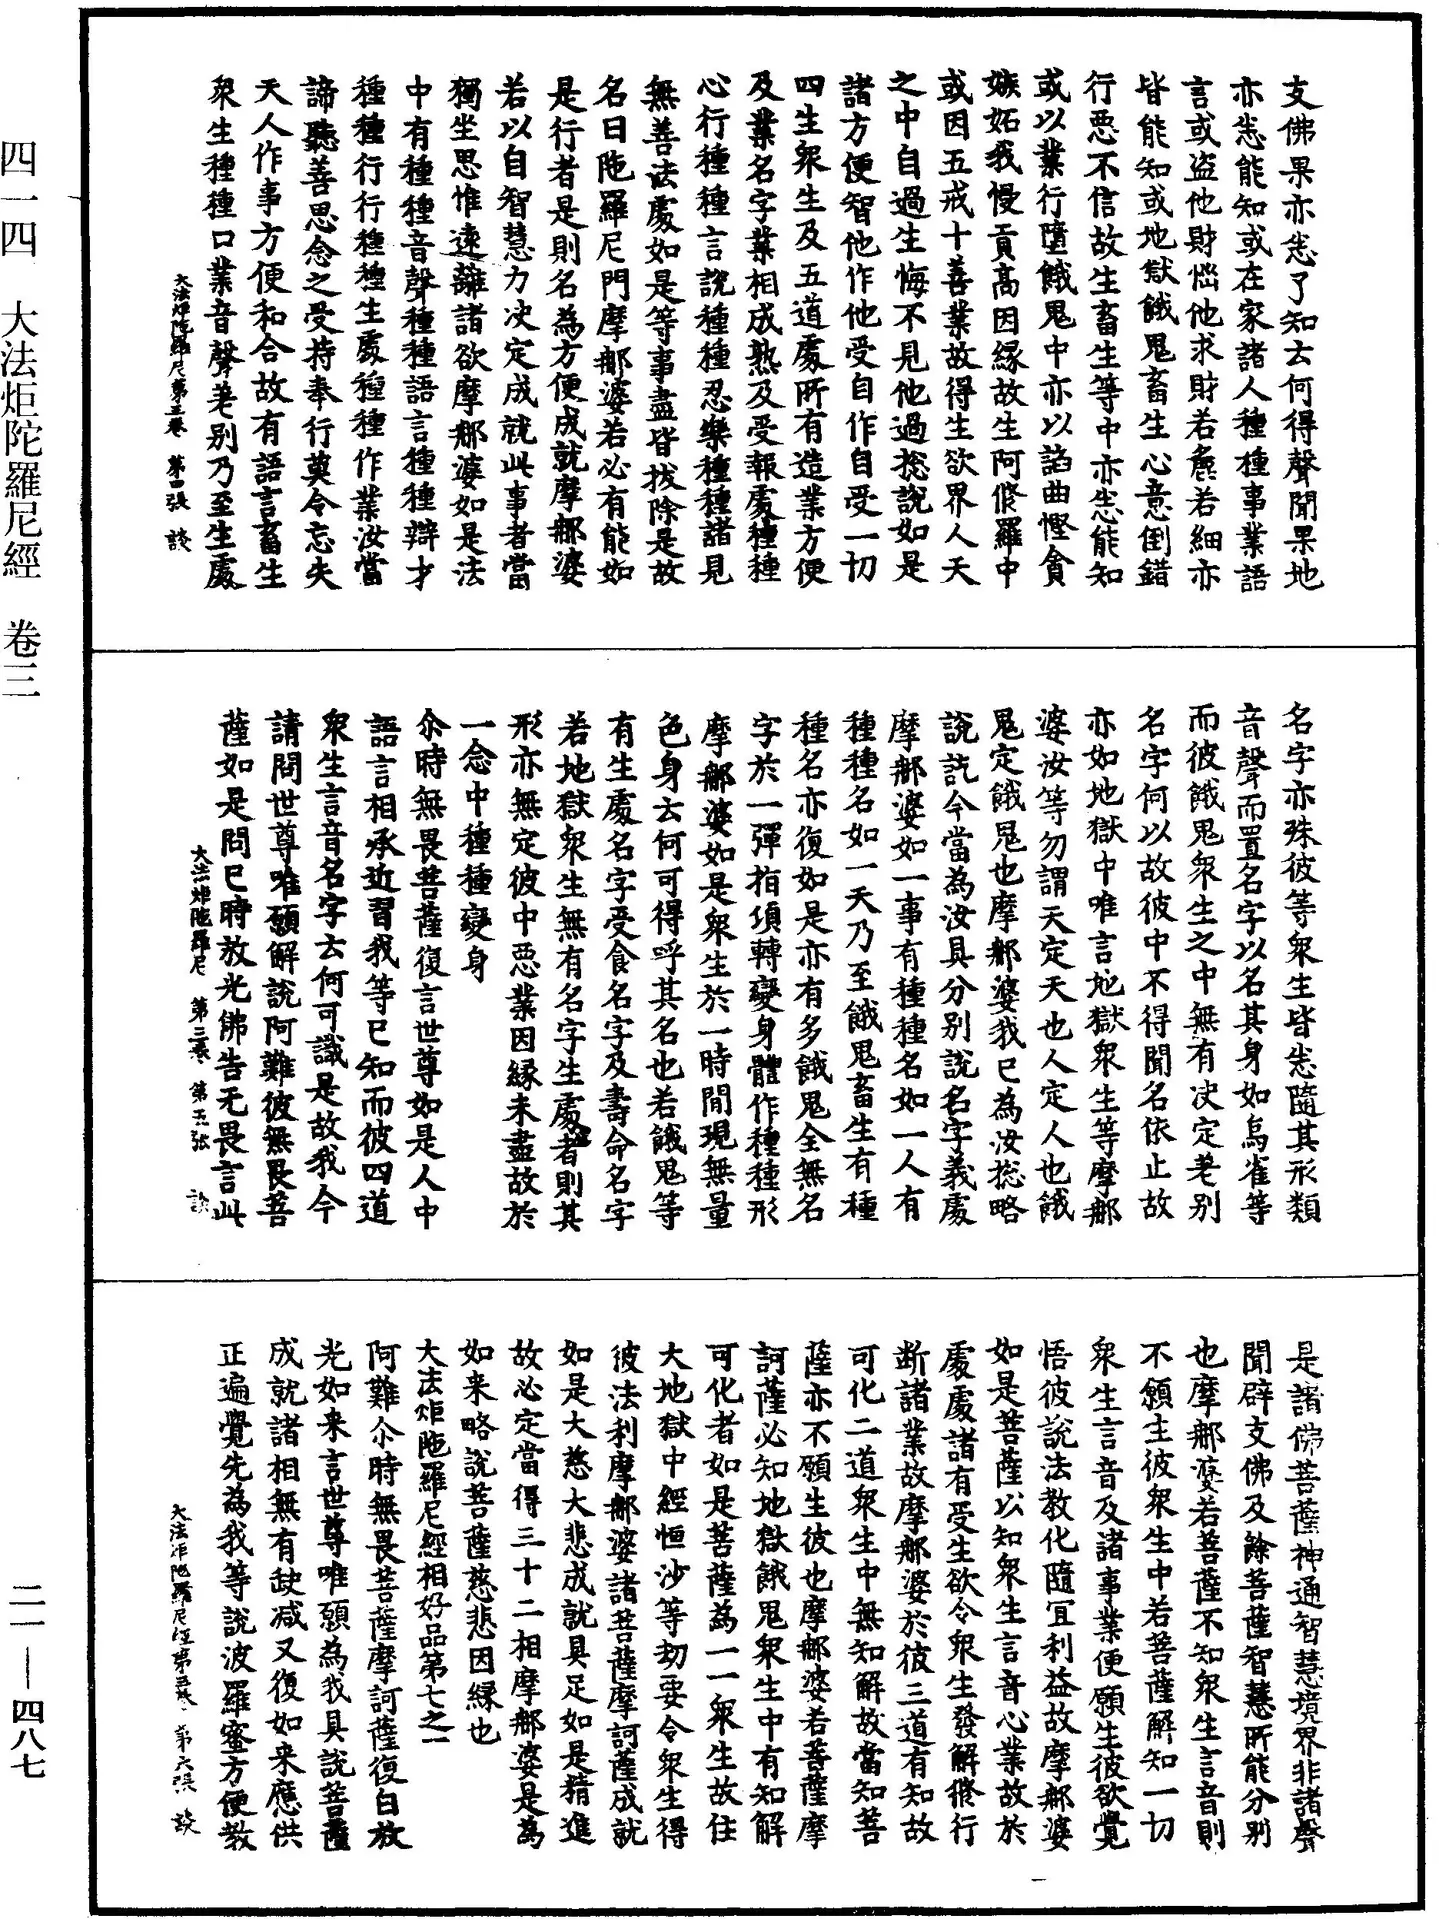 支佛果亦悉了知云何得聲聞果地
亦悉能知或在家諸人種種事業語
言或盗他財惱他求財若麁若細亦
皆能知或地獄餓鬼畜生心意倒錯
行惡不信故生畜生等中亦悉能知
或以業行墮餓鬼中亦以諂曲慳貪
嫉妬我慢貢高因緣故生阿修羅中
或因五戒十善業故得生欲界人天
之中自過生悔不見他過捴說如是
諸方便智他作他受自作自受一切
四生衆生及五道處所有造業方便
及業名字業相成熟及受報處種種
心行種種言說種種忍樂種種諸見
無善法處如是等事盡皆拔除是故
名曰陁羅尼門摩那婆若必有能如
是行者是則名為方便成就摩那婆
若以自智慧力决定成就此事者當
獨坐思惟遠離諸欲摩那婆如是法
中有種種音聲種種語言種種辯才
種種行行種種生處種種作業汝當
諦聽善思念之受持奉行莫令忘失
天人作事方便和合故有語言畜生
衆生種種口業音聲差別乃至生處
大法炬陁羅尼第三卷 第四張 談
名字亦殊彼等衆生皆悉隨其形類
音聲而置名字以名其身如烏雀等
而彼餓鬼衆生之中無有决定差別
名字何以故彼中不得聞名依止故
亦如地獄中唯言地獄衆生等摩那
婆汝等勿謂天定天也人定人也餓
鬼定餓鬼也摩那婆我已為汝捴略
說訖今當為汝具分別說名字義處
摩那婆如一事有種種名如一人有
種種名如一天乃至餓鬼畜生有種
種種名亦復如是亦有多餓鬼全無名
字於一彈指頃轉變身體作種種形
摩那婆如是衆生於一時間現無量
色身云何可得呼其名也若餓鬼等
有生處名字受食名字及壽命名字
若地獄衆生無有名字生處者則其
形亦無定彼中惡業因緣未盡故於
一念中種種變身
尒時無畏菩薩復言世尊如是人中
語言相承近習我等已知而彼四道
衆生言音名字云何可識是故我今
請問世尊唯願解說阿難彼無畏菩
薩如是問已時放光佛告无畏言此
大法炬陁羅尼 第三卷 第五張 談
是諸佛菩薩神通智慧境界非諸聲
聞辟支佛及餘菩薩智慧所能分別
也摩那婆若菩薩不知衆生言音則
不願生彼衆生中若菩薩解知一切
衆生言音及諸事業便願生彼欲覺
悟彼說法教化隨宜利益故摩那婆
如是菩薩以知衆生言音心業故於
處處諸有受生欲令衆生發解修行
斷諸業故摩那婆於彼三道有知故
可化二道衆生中無知解故當知菩
薩亦不願生彼也摩那婆若菩薩摩
訶薩必知地獄餓鬼衆生中有知解
可化者如是菩薩為一一衆生故住
大地獄中經恒沙等劫要令衆生得
彼法利摩那婆諸菩薩摩訶薩成就
如是大慈大悲成就具足如是精進
故必定當得三十二相摩那婆是為
如来略說菩薩慈悲因緣也
大法炬陁羅尼經相好品第七之一
阿難尒時無畏菩薩摩訶薩復白放
光如来言世尊唯願為我具說菩薩
成就諸相無有缺减又復如来應供
正遍覺先為我等說波羅蜜方便教
大法炬陁羅尼經第三卷 第六張 談
四一四 大法炬陀羅尼經 卷三
二一—四八七